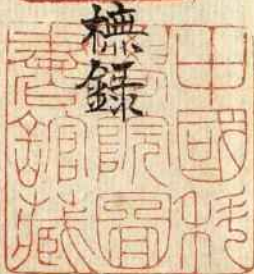 橅録
中國科
學院圖
書館藏